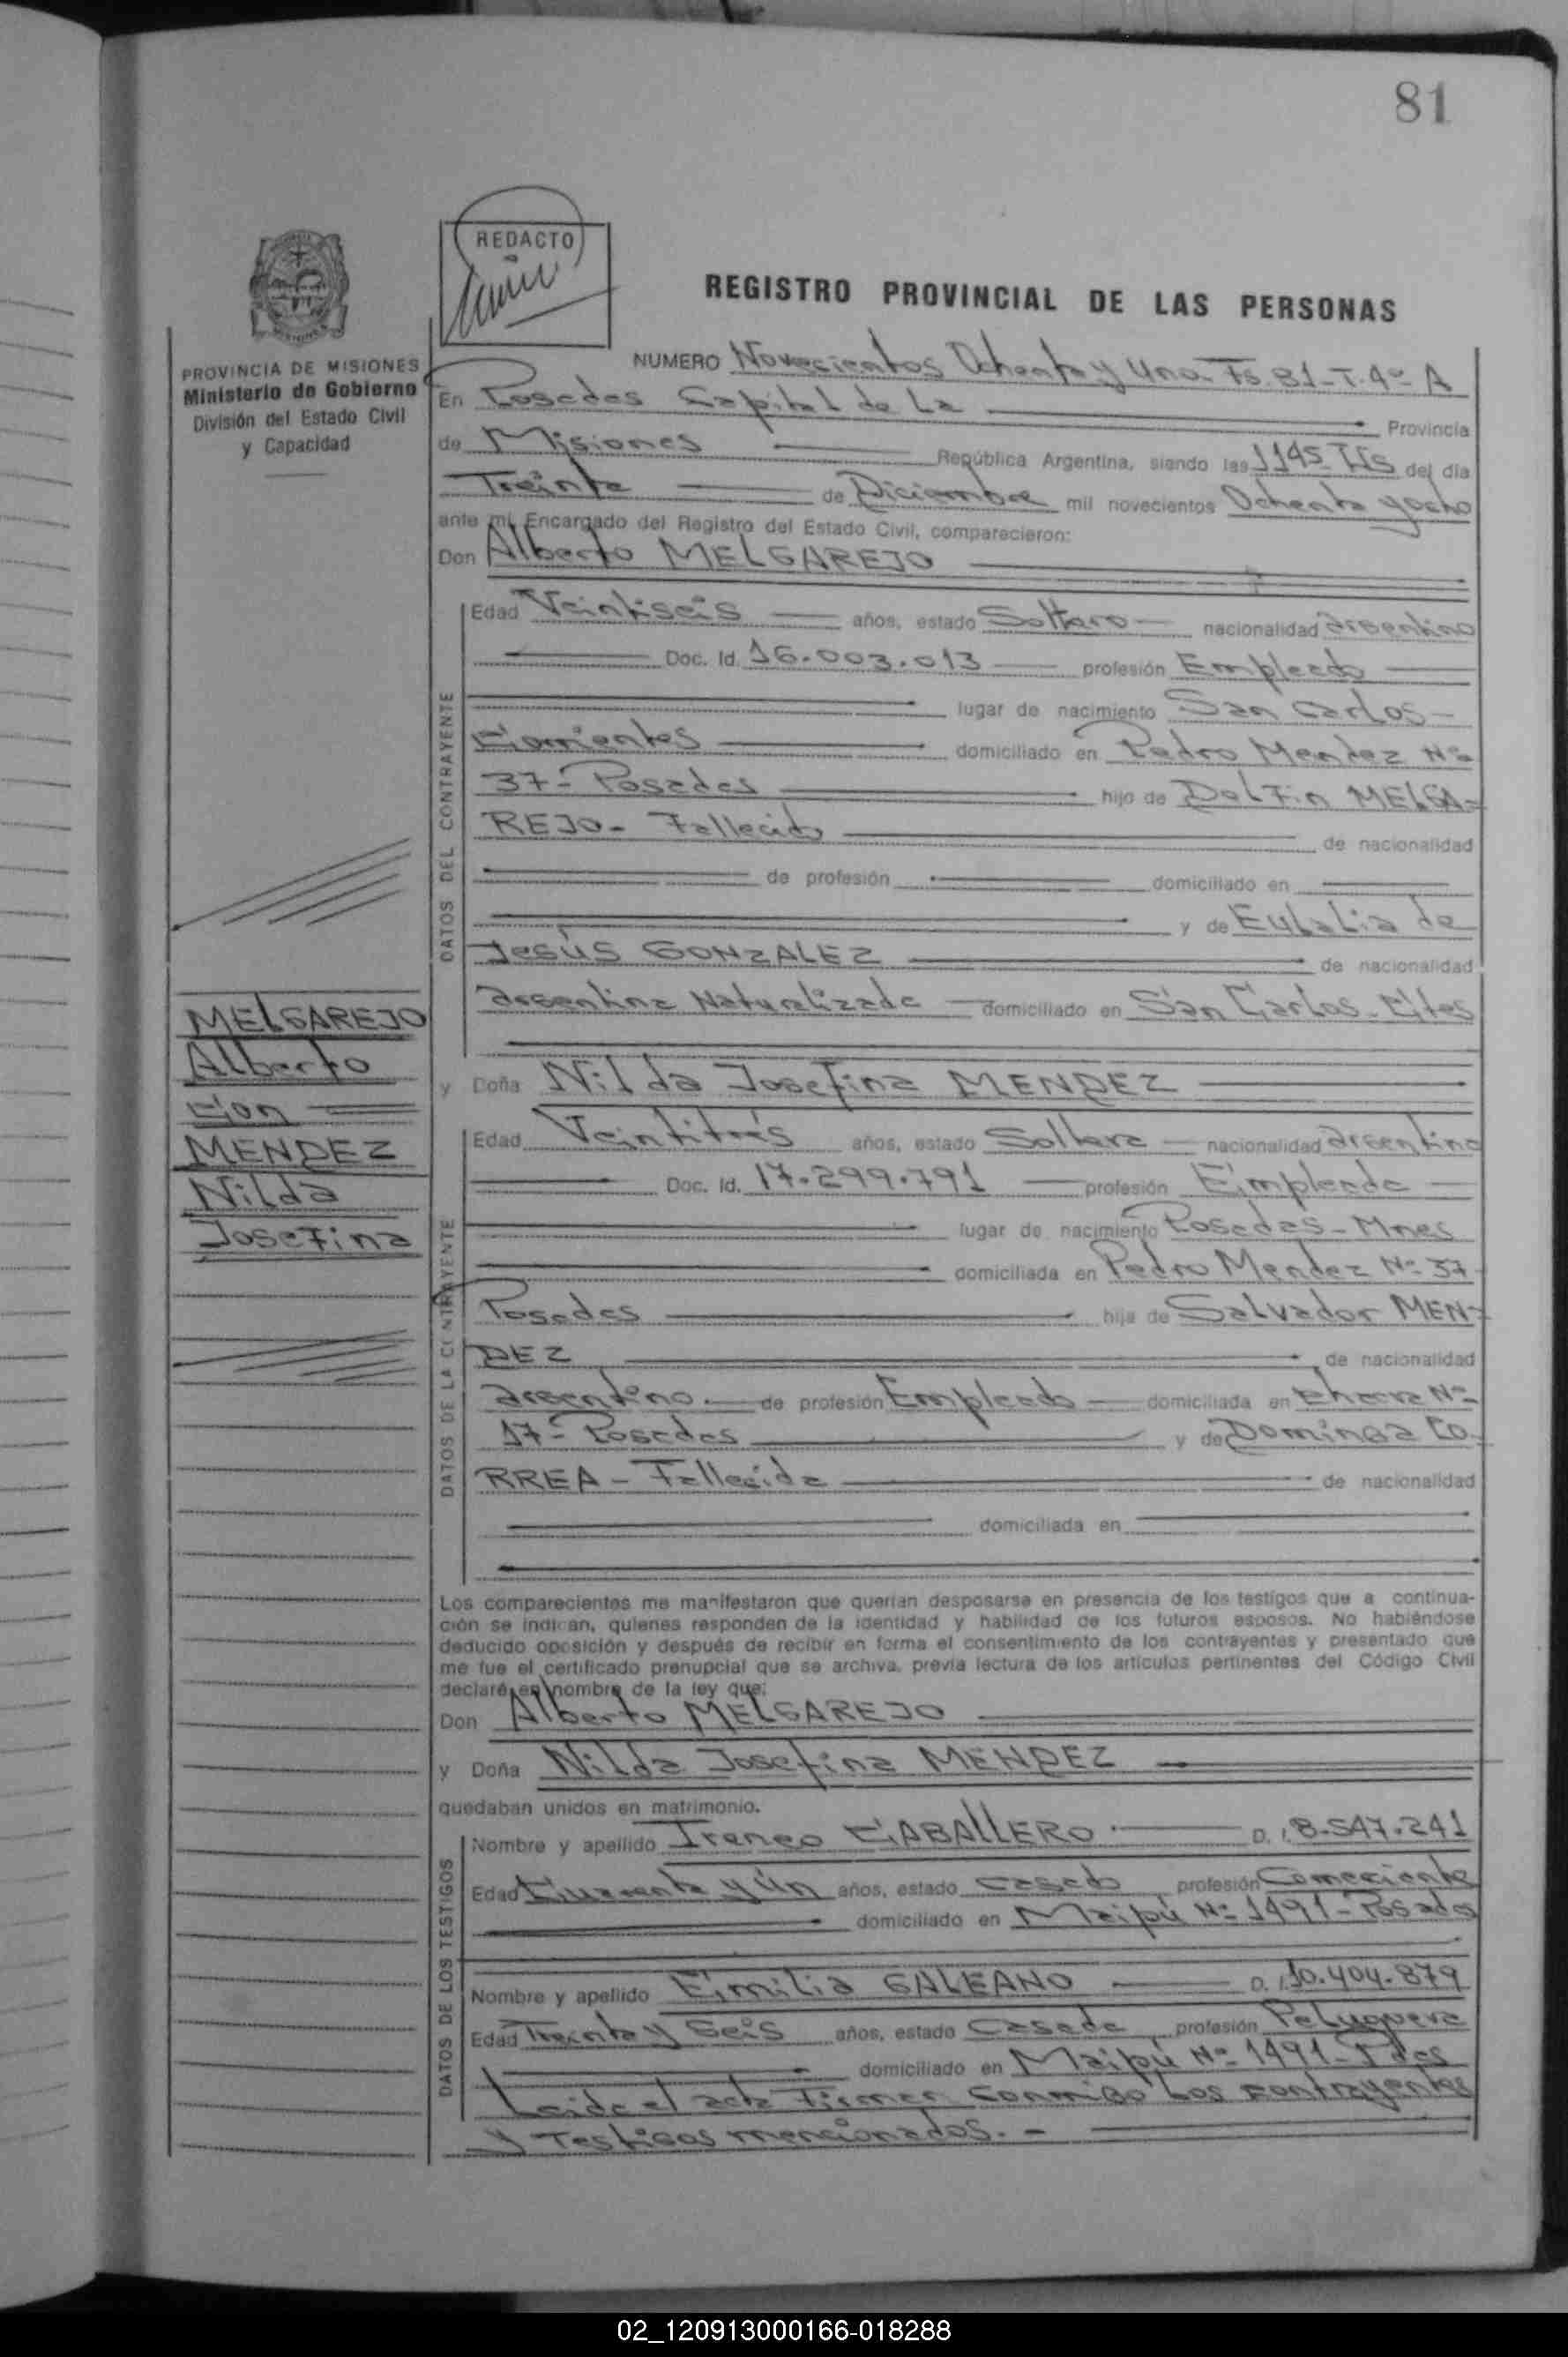 81
REDACTO
REGISTRO PROVINCIAL DE LAS PERSONAS
PROVINCIA DE MISIONES
Ministerio de Gobierno
División del Estado Civil
y Capacidad
NUMERO Novecientos Ochenta y Uno. Fs. 81 - T. 4º - A
En Posadas Capital de La Provincia
de Misiones República Argentina, siendo las 1145 Hs del día
Treinta de Diciembre mil novecientos Ochenta y ocho
ante mí, Encargado del Registro del Estado Civil, comparecieron:
Don Alberto MELGAREJO
DATOS DEL CONTRAYENTE
Edad Veintiseis años, estado Soltero nacionalidad argentino
Doc. Id. 16.003.013 profesión Empleado
lugar de nacimiento San Carlos -
Corrientes domiciliado en Pedro Mendez Nº
37 - Posadas hijo de Delfin MELGA-
REJO - Fallecido de nacionalidad
de profesión domiciliado en
y de Eulalia de
Jesús GONZALEZ de nacionalidad
argentina Naturalizada domiciliado en San Carlos - Ctes
y Doña Nilda Josefina MENDEZ
DATOS DE LA CONTRAYENTE
Edad Veintitrés años, estado Soltera nacionalidad argentina
Doc. Id. 17.299.791 profesión Empleada
lugar de nacimiento Posadas - Mnes
domiciliada en Pedro Mendez Nº 37
Posadas hija de Salvador MEN-
DEZ de nacionalidad
argentino. de profesión Empleado domiciliada en Chacra Nº
17 - Posadas y de Dominga CO-
RREA - Fallecida de nacionalidad
domiciliada en
MELGAREJO
Alberto
Con
MENDEZ
Nilda
Josefina
Los comparecientes me manifestaron que querían desposarse en presencia de los testigos que a continua-
ción se indican, quienes responden de la identidad y habilidad de los futuros esposos. No habiéndose
deducido oposición y después de recibir en forma el consentimiento de los contrayentes y presentado que
me fue el certificado prenupcial que se archiva, previa lectura de los artículos pertinentes del Código Civil
declaré en nombre de la ley que:
Don Alberto MELGAREJO
y Doña Nilda Josefina MENDEZ
quedaban unidos en matrimonio.
DATOS DE LOS TESTIGOS
Nombre y apellido Ireneo CABALLERO D. I. 8.547.241
Edad Cuarenta y ún años, estado casado profesión Comerciante
domiciliado en Maipú Nº 1491 - Posadas
Nombre y apellido Emilia GALEANO D. I. 10.404.879
Edad Treinta y Seis años, estado Casada profesión Peluquera
domiciliado en Maipú Nº 1491 - Pdas
Leida el acta Firman Conmigo Los contrayentes
y Testigos mencionados. -
02_120913000166-018288